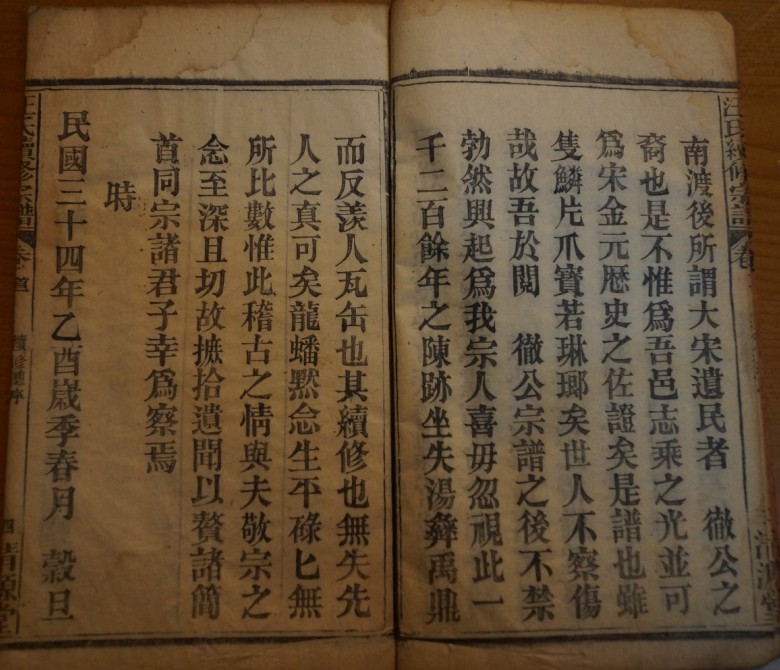 汪氏續修宗譜
卷
清源堂
南渡後所謂大宋遺民者 徹公之
裔也是不惟爲吾邑志乘之光並可
爲宋金元歷史之佐證矣是譜也雖
隻鱗片爪寶若琳瑯矣世人不察傷
哉故吾於閱 徹公宗譜之後不禁
勃然興起爲我宗人喜毋忽視此一
千二百餘年之陳跡坐失湯彝禹鼎
而反羨人瓦缶也其續修也無失先
人之真可矣龍蟠默念生平碌匕無
所比數惟此稽古之情與夫敬宗之
念至深且切故摭拾遺聞以贅諸簡
首同宗諸君子幸爲察焉
時
民國三十四年乙酉歲季春月 穀旦
汪氏續修宗譜
卷首
續修總序
四
清源堂